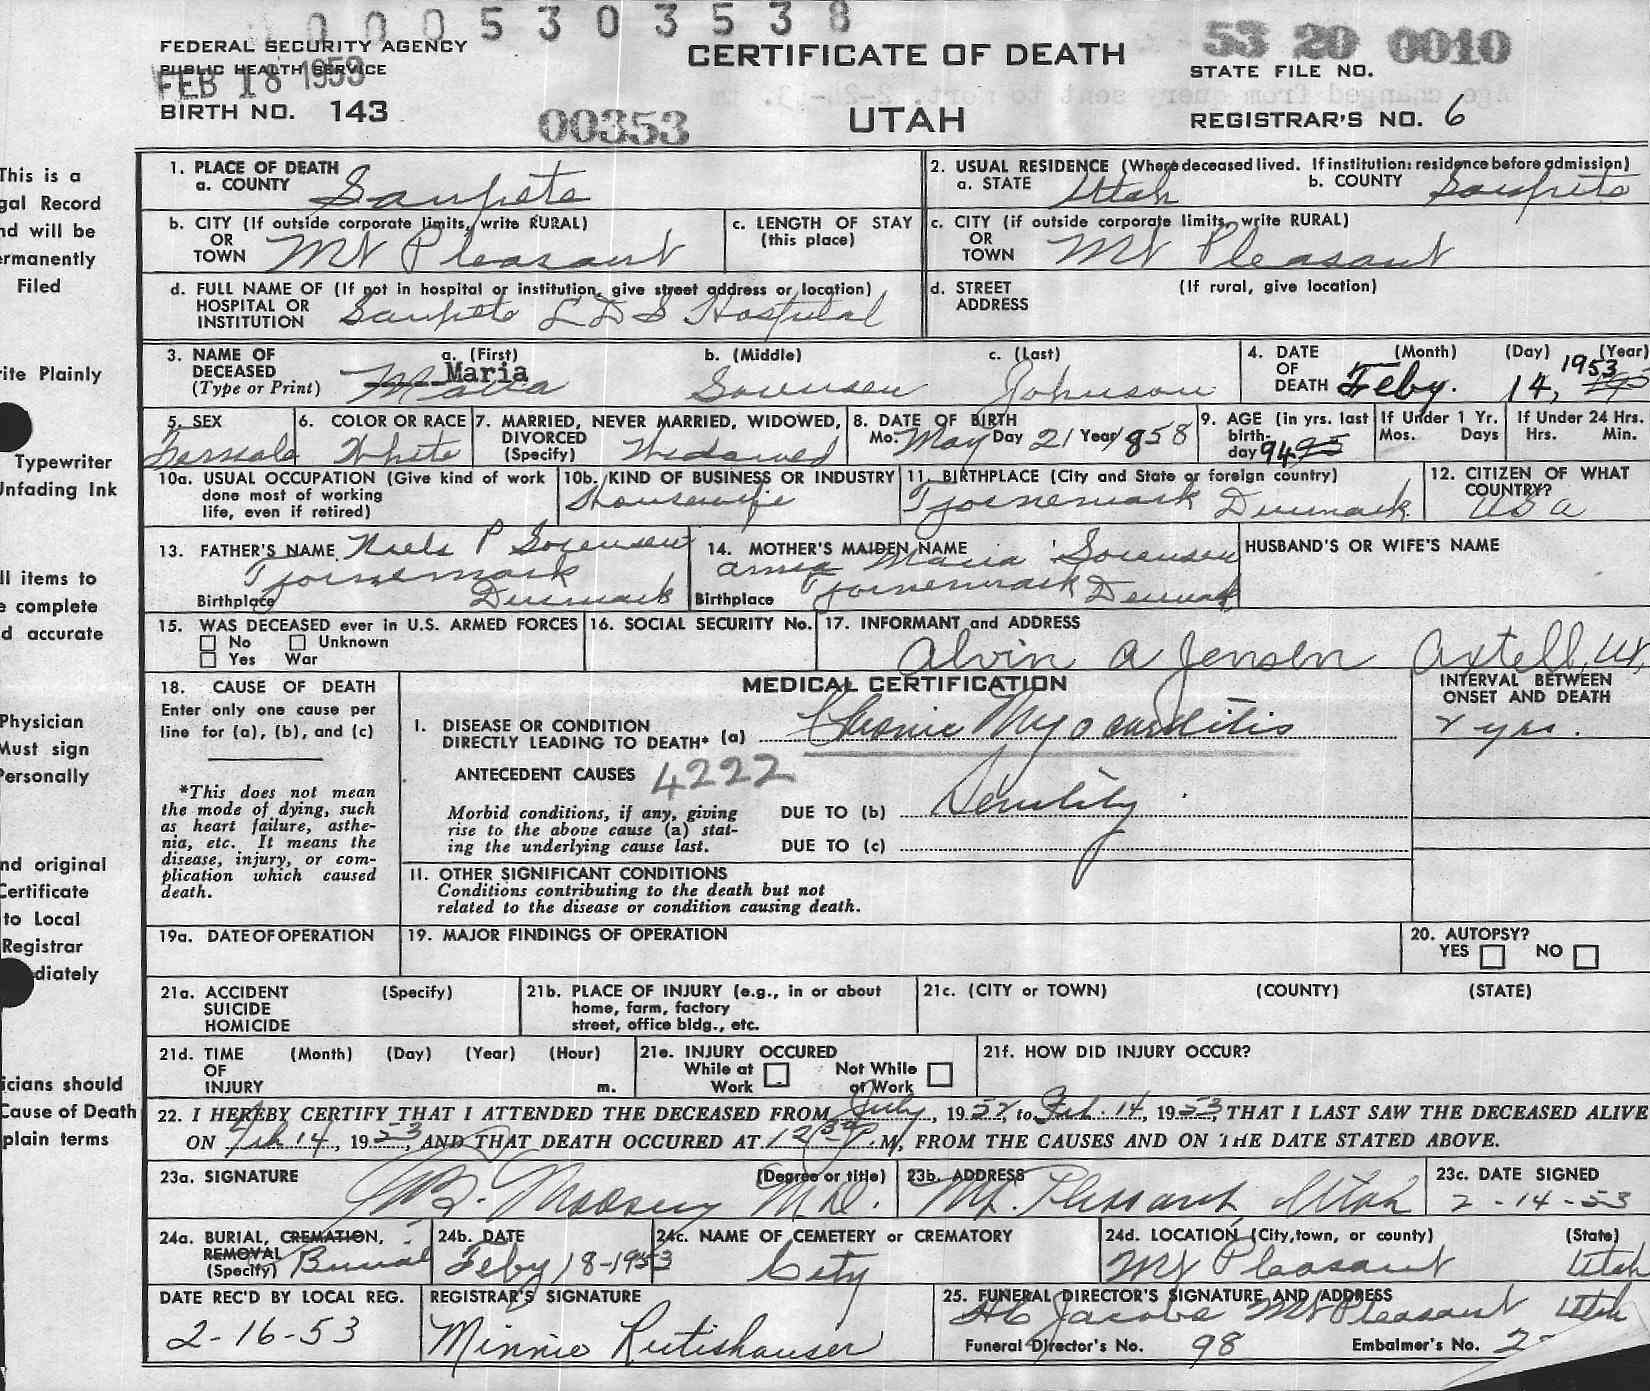 0 0 0 5 3 0 3 5 3 8
FEDERAL SECURITY AGENCY
PUBLIC HEALTH SERVICE
FEB 18 1953
BIRTH NO. 143
00353
CERTIFICATE OF DEATH
UTAH
53 20 0010
STATE FILE NO.
REGISTRAR'S NO. 6
This is a
gal Record
nd will be
ermanently
Filed
rite Plainly
Typewriter
Unfading Ink
ll items to
e complete
d accurate
Physician
Must sign
Personally
nd original
Certificate
to Local
Registrar
diately
icians should
Cause of Death
plain terms
1. PLACE OF DEATH
a. COUNTY Sanpete
2. USUAL RESIDENCE (Where deceased lived. If institution: residence before admission)
a. STATE Utah b. COUNTY Sanpete
b. CITY (If outside corporate limits, write RURAL)
OR
TOWN Mt Pleasant
c. LENGTH OF STAY
(this place)
c. CITY (if outside corporate limits, write RURAL)
OR
TOWN Mt Pleasant
d. FULL NAME OF (If not in hospital or institution, give street address or location)
HOSPITAL OR
INSTITUTION Sanpete LDS Hospital
d. STREET (If rural, give location)
ADDRESS
3. NAME OF DECEASED (Type or Print)
a. (First) b. (Middle) c. (Last)
Maria Sorensen Johnson
4. DATE OF DEATH (Month) (Day) (Year)
Feby. 14, 1953
5. SEX Female
6. COLOR OR RACE White
7. MARRIED, NEVER MARRIED, WIDOWED, DIVORCED (Specify) Widowed
8. DATE OF BIRTH
Mo. May Day 21 Year 1858
9. AGE (in yrs. last birthday 94 95
If Under 1 Yr. Mos. Days
If Under 24 Hrs. Hrs. Min.
10a. USUAL OCCUPATION (Give kind of work done most of working life, even if retired)
10b. KIND OF BUSINESS OR INDUSTRY
Housewife
11. BIRTHPLACE (City and State or foreign country)
Tjornemark Denmark
12. CITIZEN OF WHAT COUNTRY?
USA
13. FATHER'S NAME Niels P Sorensen
Tjornemark
Birthplace Denmark
14. MOTHER'S MAIDEN NAME
Maria Sorensen
Birthplace Tjornemark Denmark
HUSBAND'S OR WIFE'S NAME
15. WAS DECEASED ever in U.S. ARMED FORCES
No Unknown
Yes War
16. SOCIAL SECURITY No.
17. INFORMANT and ADDRESS
Alvin A Jensen Axtell, Ut,
18. CAUSE OF DEATH
Enter only one cause per
line for (a), (b), and (c)
*This does not mean
the mode of dying, such
as heart failure, asthe-
nia, etc. It means the
disease, injury, or com-
plication which caused
death.
MEDICAL CERTIFICATION
INTERVAL BETWEEN
ONSET AND DEATH
I. DISEASE OR CONDITION
DIRECTLY LEADING TO DEATH* (a) Chronic Myocarditis
yrs.
ANTECEDENT CAUSES 4222
Morbid conditions, if any, giving
rise to the above cause (a) stat-
ing the underlying cause last.
DUE TO (b) Senility
DUE TO (c)
II. OTHER SIGNIFICANT CONDITIONS
Conditions contributing to the death but not
related to the disease or condition causing death.
19a. DATE OF OPERATION
19. MAJOR FINDINGS OF OPERATION
20. AUTOPSY?
YES NO
21a. ACCIDENT (Specify)
SUICIDE
HOMICIDE
21b. PLACE OF INJURY (e.g., in or about
home, farm, factory
street, office bldg., etc.
21c. (CITY or TOWN) (COUNTY) (STATE)
21d. TIME (Month) (Day) (Year) (Hour)
OF
INJURY m.
21e. INJURY OCCURED
While at Work Not While at Work
21f. HOW DID INJURY OCCUR?
22. I HEREBY CERTIFY THAT I ATTENDED THE DECEASED FROM July, 1952, to Feb. 14, 1953, THAT I LAST SAW THE DECEASED ALIVE
ON Feb 14, 1953, AND THAT DEATH OCCURED AT 12 30 P.M, FROM THE CAUSES AND ON THE DATE STATED ABOVE.
23a. SIGNATURE (Degree or title)
M.D.
23b. ADDRESS
Mt. Pleasant, Utah
23c. DATE SIGNED
2-14-53
24a. BURIAL, CREMATION,
REMOVAL
(Specify) Burial
24b. DATE
Feby 18-1953
24c. NAME OF CEMETERY or CREMATORY
City
24d. LOCATION (City, town, or county) (State)
Mt Pleasant Utah
DATE REC'D BY LOCAL REG.
2-16-53
REGISTRAR'S SIGNATURE
Minnie Rutishauser
25. FUNERAL DIRECTOR'S SIGNATURE AND ADDRESS
Jacobs Mt Pleasant Utah
Funeral Director's No. 98 Embalmer's No. 2